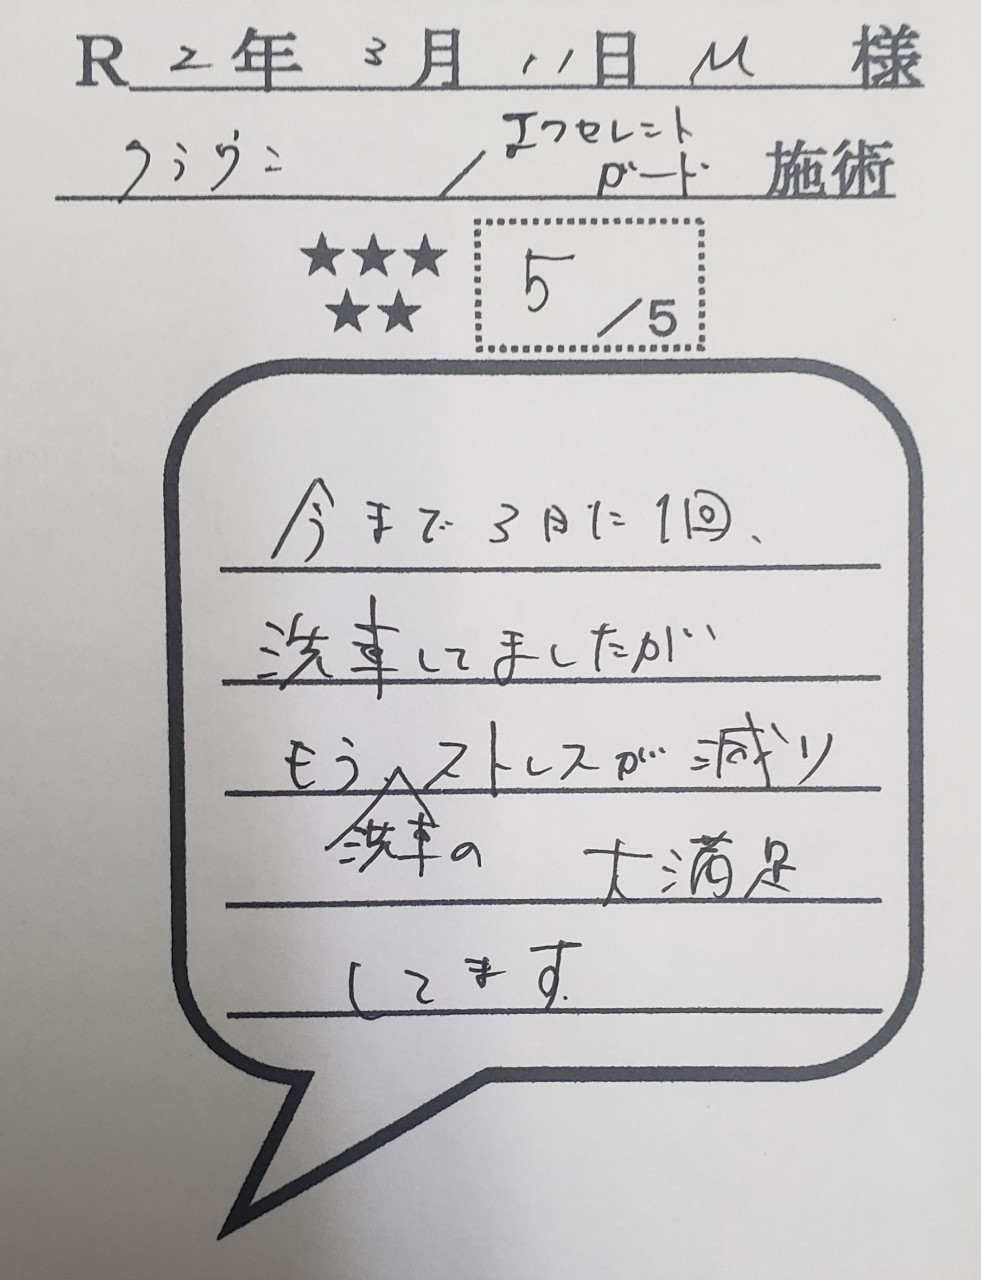 R 2年 3月 11日 M 様
クラウン / エクセレント
ガード 施術
★★★
★★
5 /5
今まで3月に1回、
洗車してましたが
もうストレスが減り
洗車の 大満足
してます